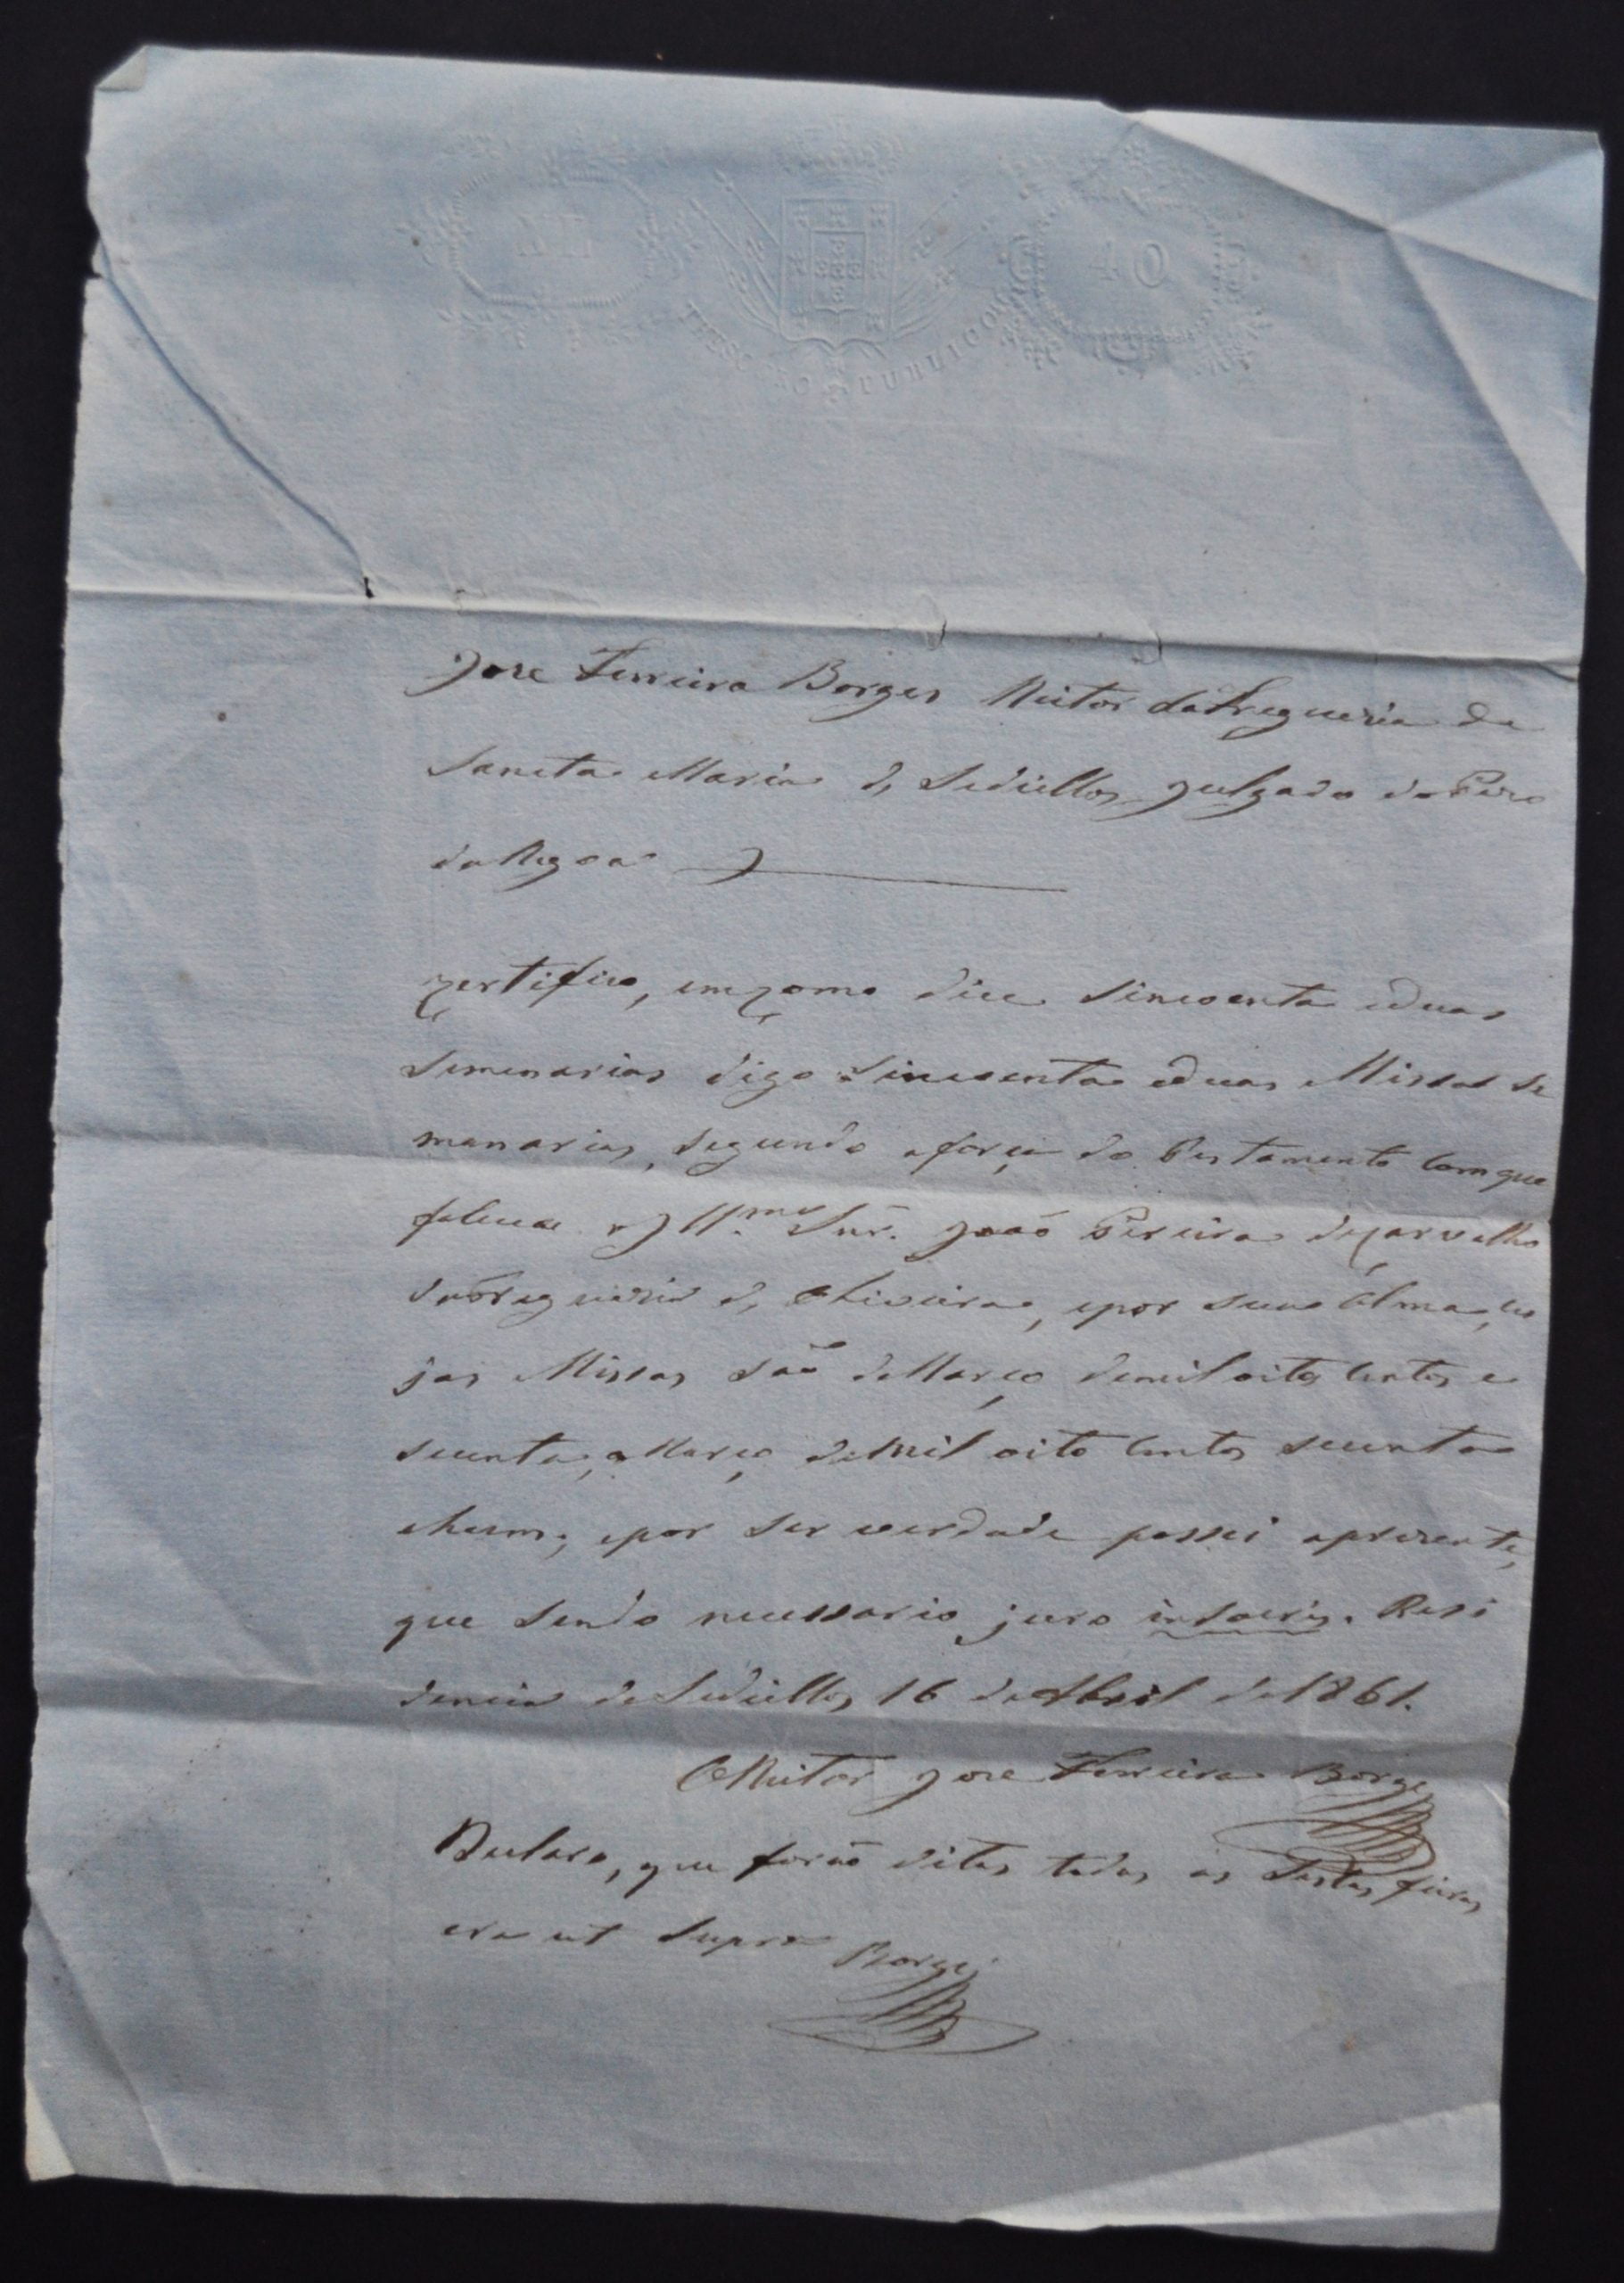 XL 40
THESOURO PUBLICO
Jose Ferreira Borges Reitor da Freguezia de
Sancta Maria de Sediellos Julgado do Pezo
da Regoa
Certifico, em como dice sincoenta e duas
semenarias digo sincoenta e duas Missas se
manarias, segundo a força do Testamento com que
faleceu o Illmo Snr. João Pereira de Carvalho
da Freguezia de Oliveira, e por sua Alma, cu
jas Missas são de Março de mil oito centos e
secenta, a Março de Mil oito centos secenta
e hum; e por ser verdade passei a prezente,
que sendo necessario juro in sacris. Resi
dencia de Sediellos 16 de Abril de 1861.
O Reitor Jose Ferreira Borges
Declaro, que forão ditas todas as Sestas feiras
era ut supra Borges